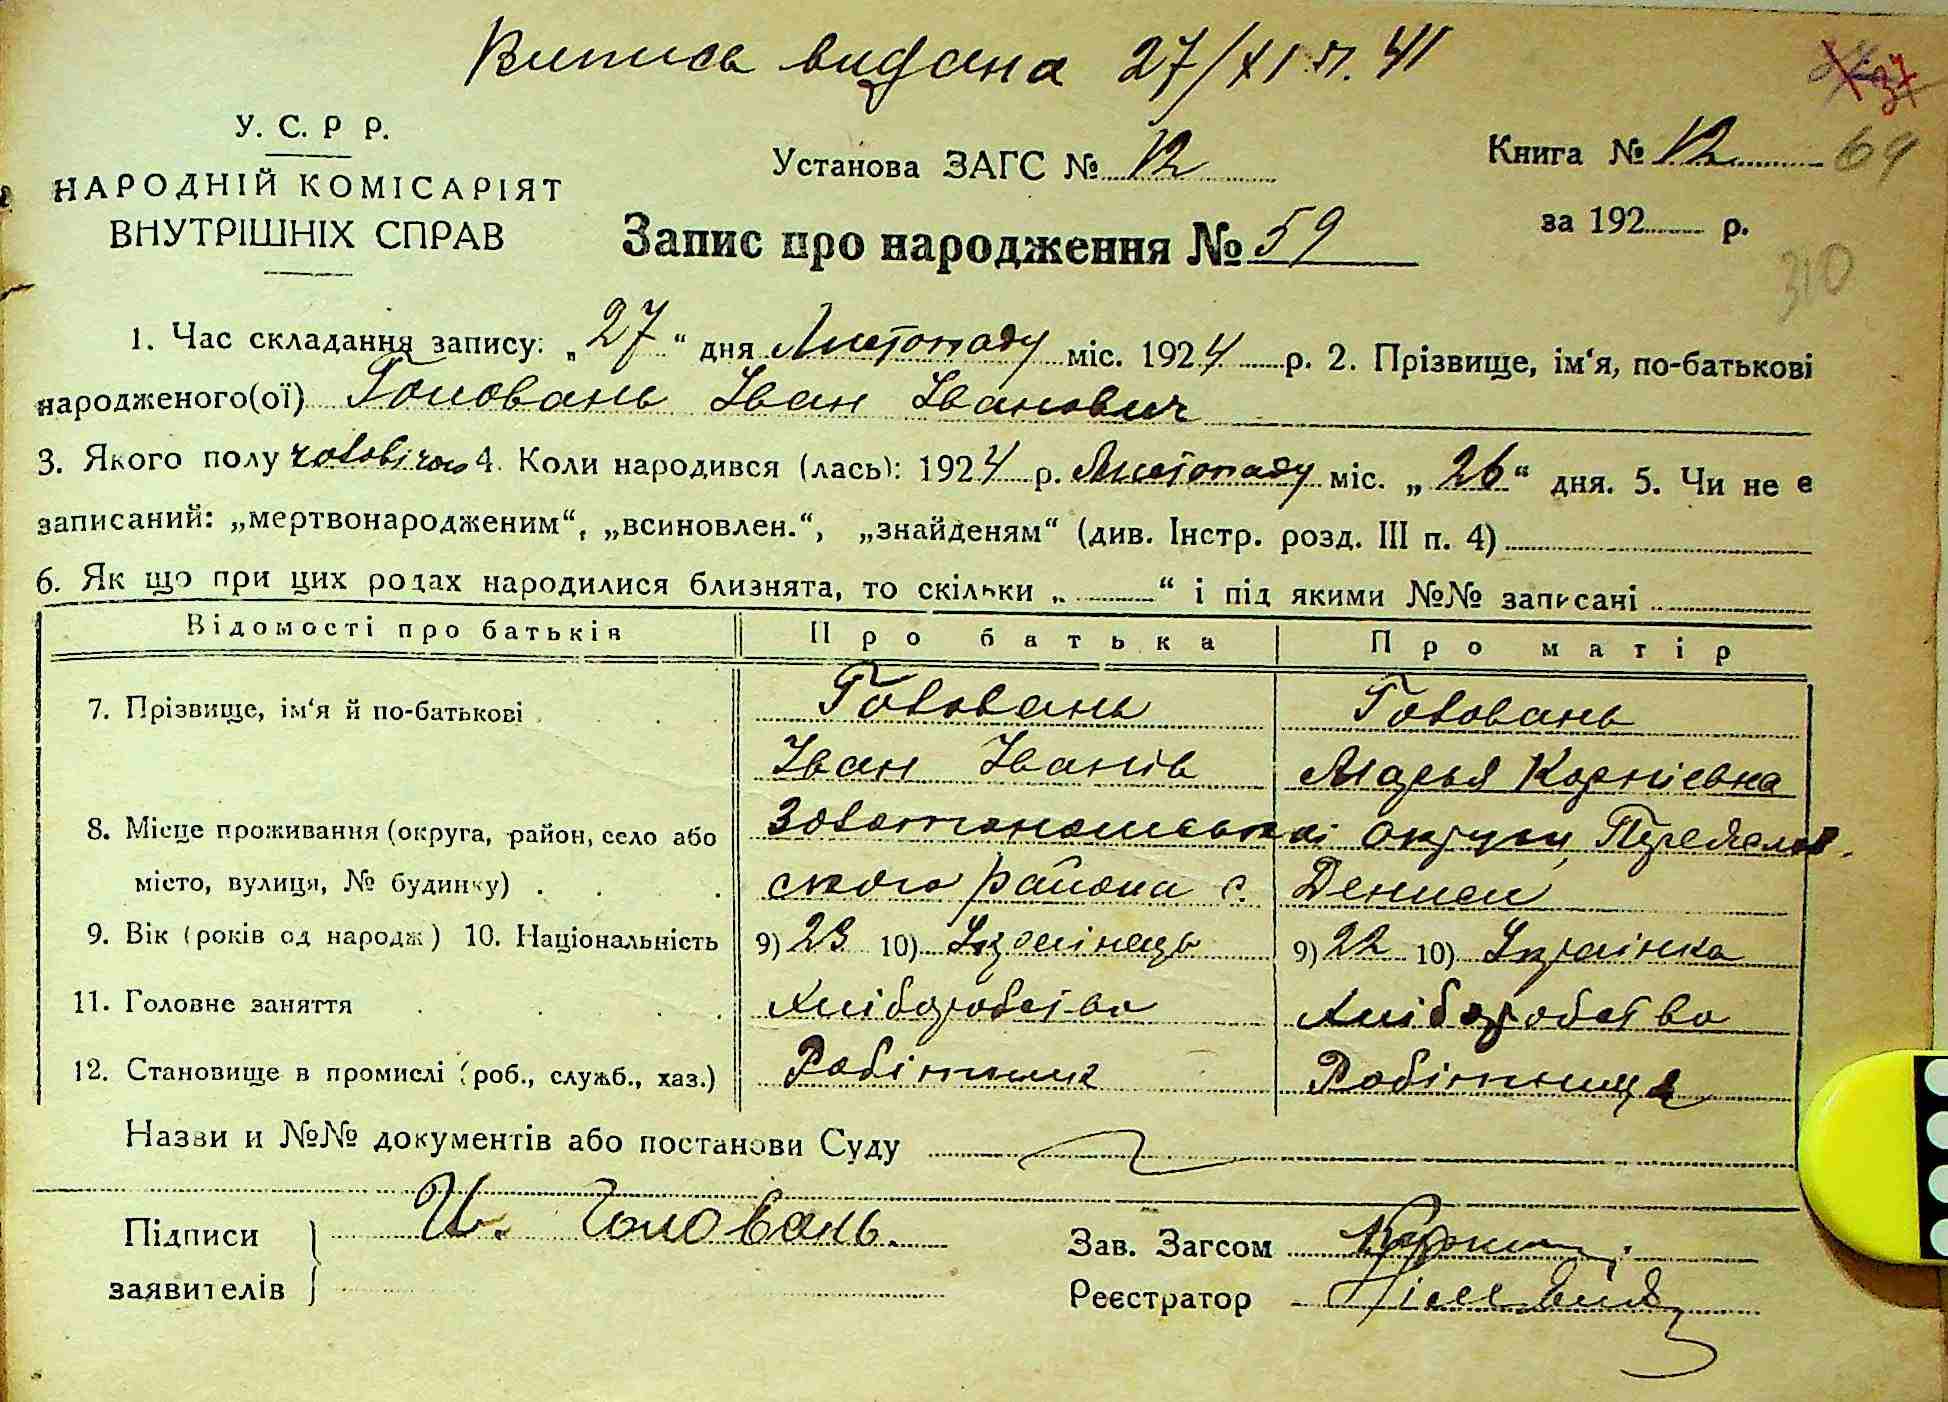 Випись видана 27/XI п. 41
37
У. С. Р Р.
НАРОДНІЙ КОМІСАРІЯТ
ВНУТРІШНІХ СПРАВ
Установа ЗАГС № 12
Книга № 12
69
за 192 р.
Запис про народження № 59
310
1. Час складання запису: „27“ дня Листопаду міс. 1924 р. 2. Прізвище, ім‘я, по-батькові
народженого(ої) Головань Іван Іванович
3. Якого полу чоловічого 4. Коли народився (лась): 1924 р. Листопаду міс. „26“ дня. 5. Чи не є
записаний: „мертвонародженим“, „всиновлен.“, „знайденям“ (див. Інстр. розд. III п. 4)
6. Як що при цих родах народилися близнята, то скільки „ “ і під якими №№ записані
Відомості про батьків Про батька Про матір
7. Прізвище, ім‘я й по-батькові Головань Головань
Іван Іванів Марья Корнієвна
8. Місце проживання (округа, район, село або Золотоношської округи, Переяслов
місто, вулиця, № будинку) ского района с. Дениси
9. Вік (років од народж) 10. Національність 9) 23 10) Українець 9) 22 10) Українка
11. Головне заняття Хліборобство Хліборобство
12. Становище в промислі (роб., служб., хаз.) Робітник Робітниця
Назви и №№ документів або постанови Суду
Підписи И. Головань.
заявителів
Зав. Загсом
Реєстратор